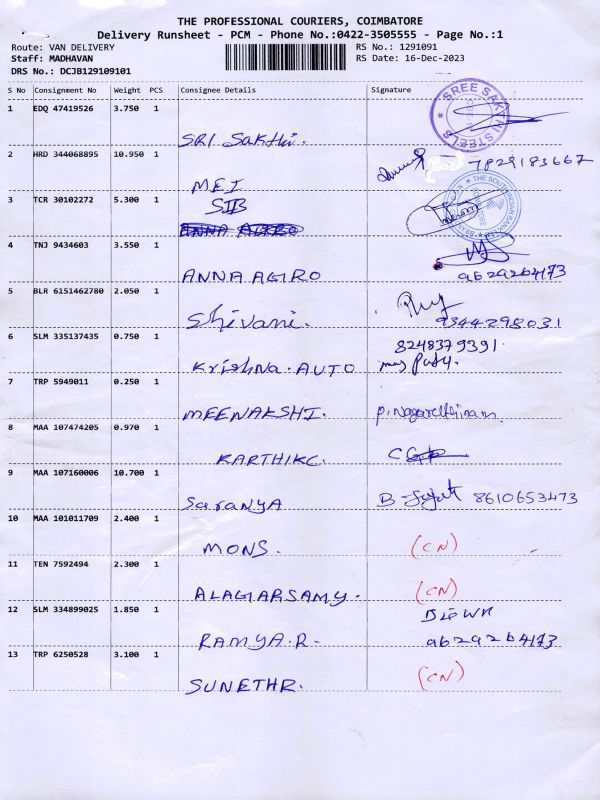 THE PROFESSIONAL COURIERS, COIMBATORE
Delivery Runsheet - PCM - Phone No.:0422-3505555 - Page No.:1
Route: VAN DELIVERY
Staff: MADHAVAN
DRS No.: DCJB129109101
RS No.: 1291091
RS Date: 16-Dec-2023
S No Consignment No Weight PCS Consignee Details Signature
1 EDQ 47419526 3.750 1
SREE SAKTHI STEELS
SRI SAKTHI.
2 HRD 344068895 10.950 1
7829183667
MEI
3 TCR 30102272 5.300 1
SIB
THE SOUTH INDIAN BANK
ANNA AGRO
4 TNJ 9434603 3.550 1
ANNA AGRO 9629264173
5 BLR 6151462780 2.050 1
Shivani. 9344298031
6 SLM 335137435 0.750 1
8248379391.
Krishna. AUTO
7 TRP 5949011 0.250 1
MEENAKSHI.
8 MAA 107474205 0.970 1
KARTHIKC.
9 MAA 107160006 10.700 1
Saranya 8610653473
10 MAA 101011709 2.400 1
MONS. (CN)
11 TEN 7592494 2.300 1
ALAGARSAMY. (CN)
12 SLM 334899025 1.850 1
RAMYA.R. 9629264173
13 TRP 6250528 3.100 1
SUNETHR. (CN)